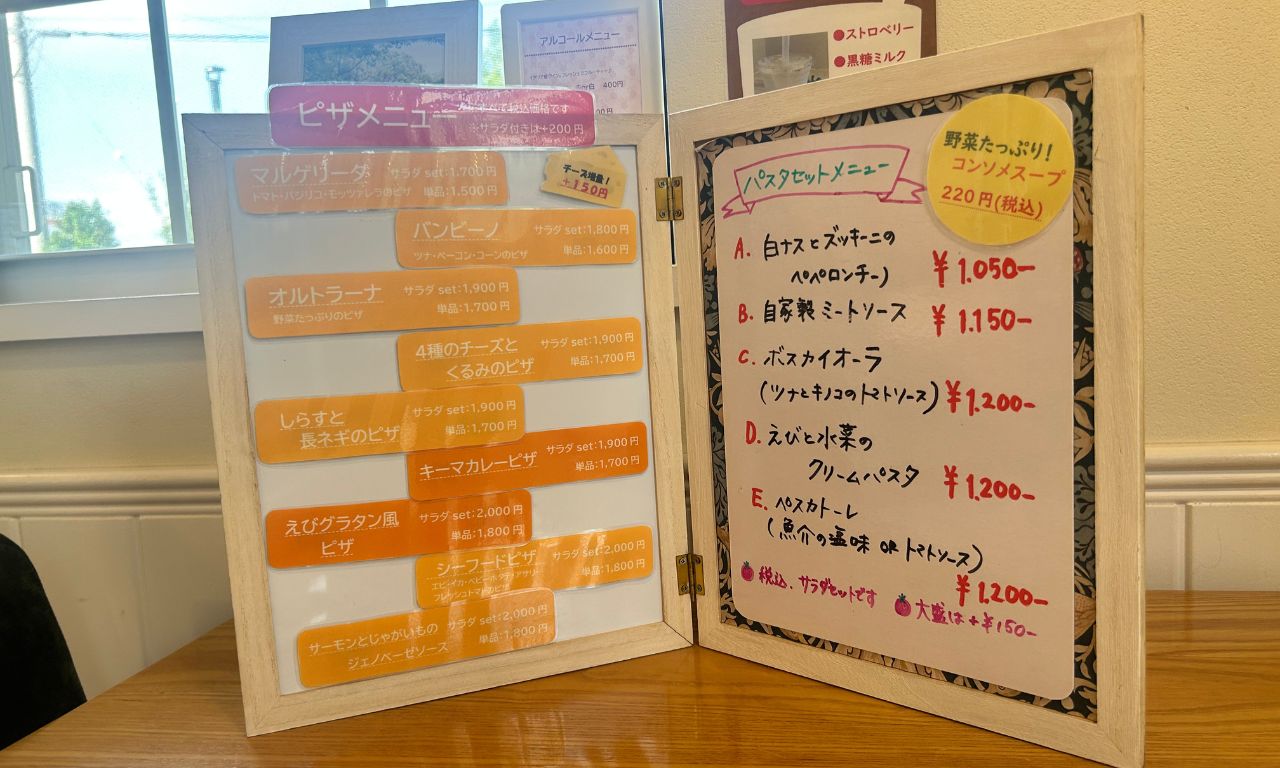 アルコールメニュー
400円
●ストロベリー
●黒糖ミルク
ピザメニュー
すべて税込価格です
※サラダ付きは+200円
チーズ増量!
+150円
マルゲリータ サラダset:1,700円
トマト・バジリコ・モッツァレラのピザ 単品:1,500円
バンビーノ サラダset:1,800円
ツナ・ベーコン・コーンのピザ 単品:1,600円
オルトラーナ サラダset:1,900円
野菜たっぷりのピザ 単品:1,700円
4種のチーズと サラダset:1,900円
くるみのピザ 単品:1,700円
しらすと サラダset:1,900円
長ネギのピザ 単品:1,700円
キーマカレーピザ サラダset:1,900円
単品:1,700円
えびグラタン風 サラダset:2,000円
ピザ 単品:1,800円
シーフードピザ サラダset:2,000円
エビ・イカ・ベビーホタテ・アサリ・ 単品:1,800円
フレッシュトマトのピザ
サーモンとじゃがいもの サラダset:2,000円
ジェノベーゼソース 単品:1,800円
パスタセットメニュー
野菜たっぷり!
コンソメスープ
220円(税込)
A. 白ナスとズッキーニの
ペペロンチー) ¥1.050-
B. 自家製ミートソース ¥1.150-
C. ボスカイオーラ
(ツナとキノコのトマトソース) ¥1.200-
D. えびと水菜の
クリームパスタ ¥1.200-
E. ペスカトーレ
(魚介の塩味 OR トマトソース)
¥1.200-
税込、サラダセットです
大盛は+¥150-